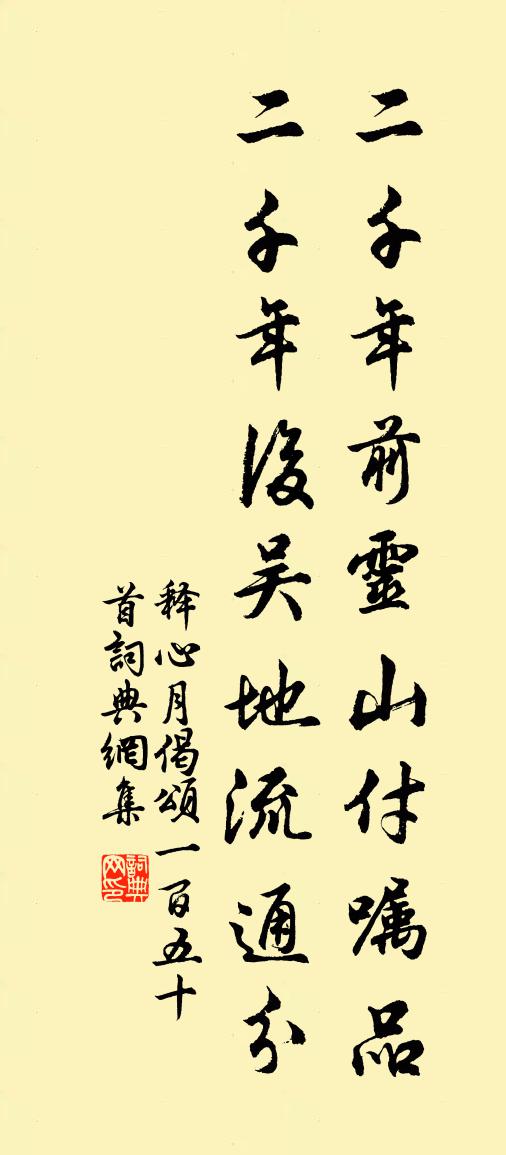 二千年前靈山付嘱品
二千年後吴地流通分
释心月偈頌一百五十
首詞典網集
詞典网印